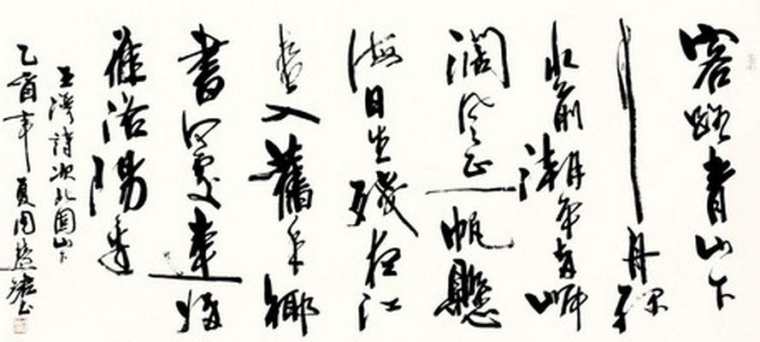 客路青山下
行舟綠
水前潮平兩岸
闊風正一帆懸
海日生殘夜江
春入舊年鄉
書何處達歸
雁洛陽邊
王灣詩次北固山下
乙酉年夏周慧珺書